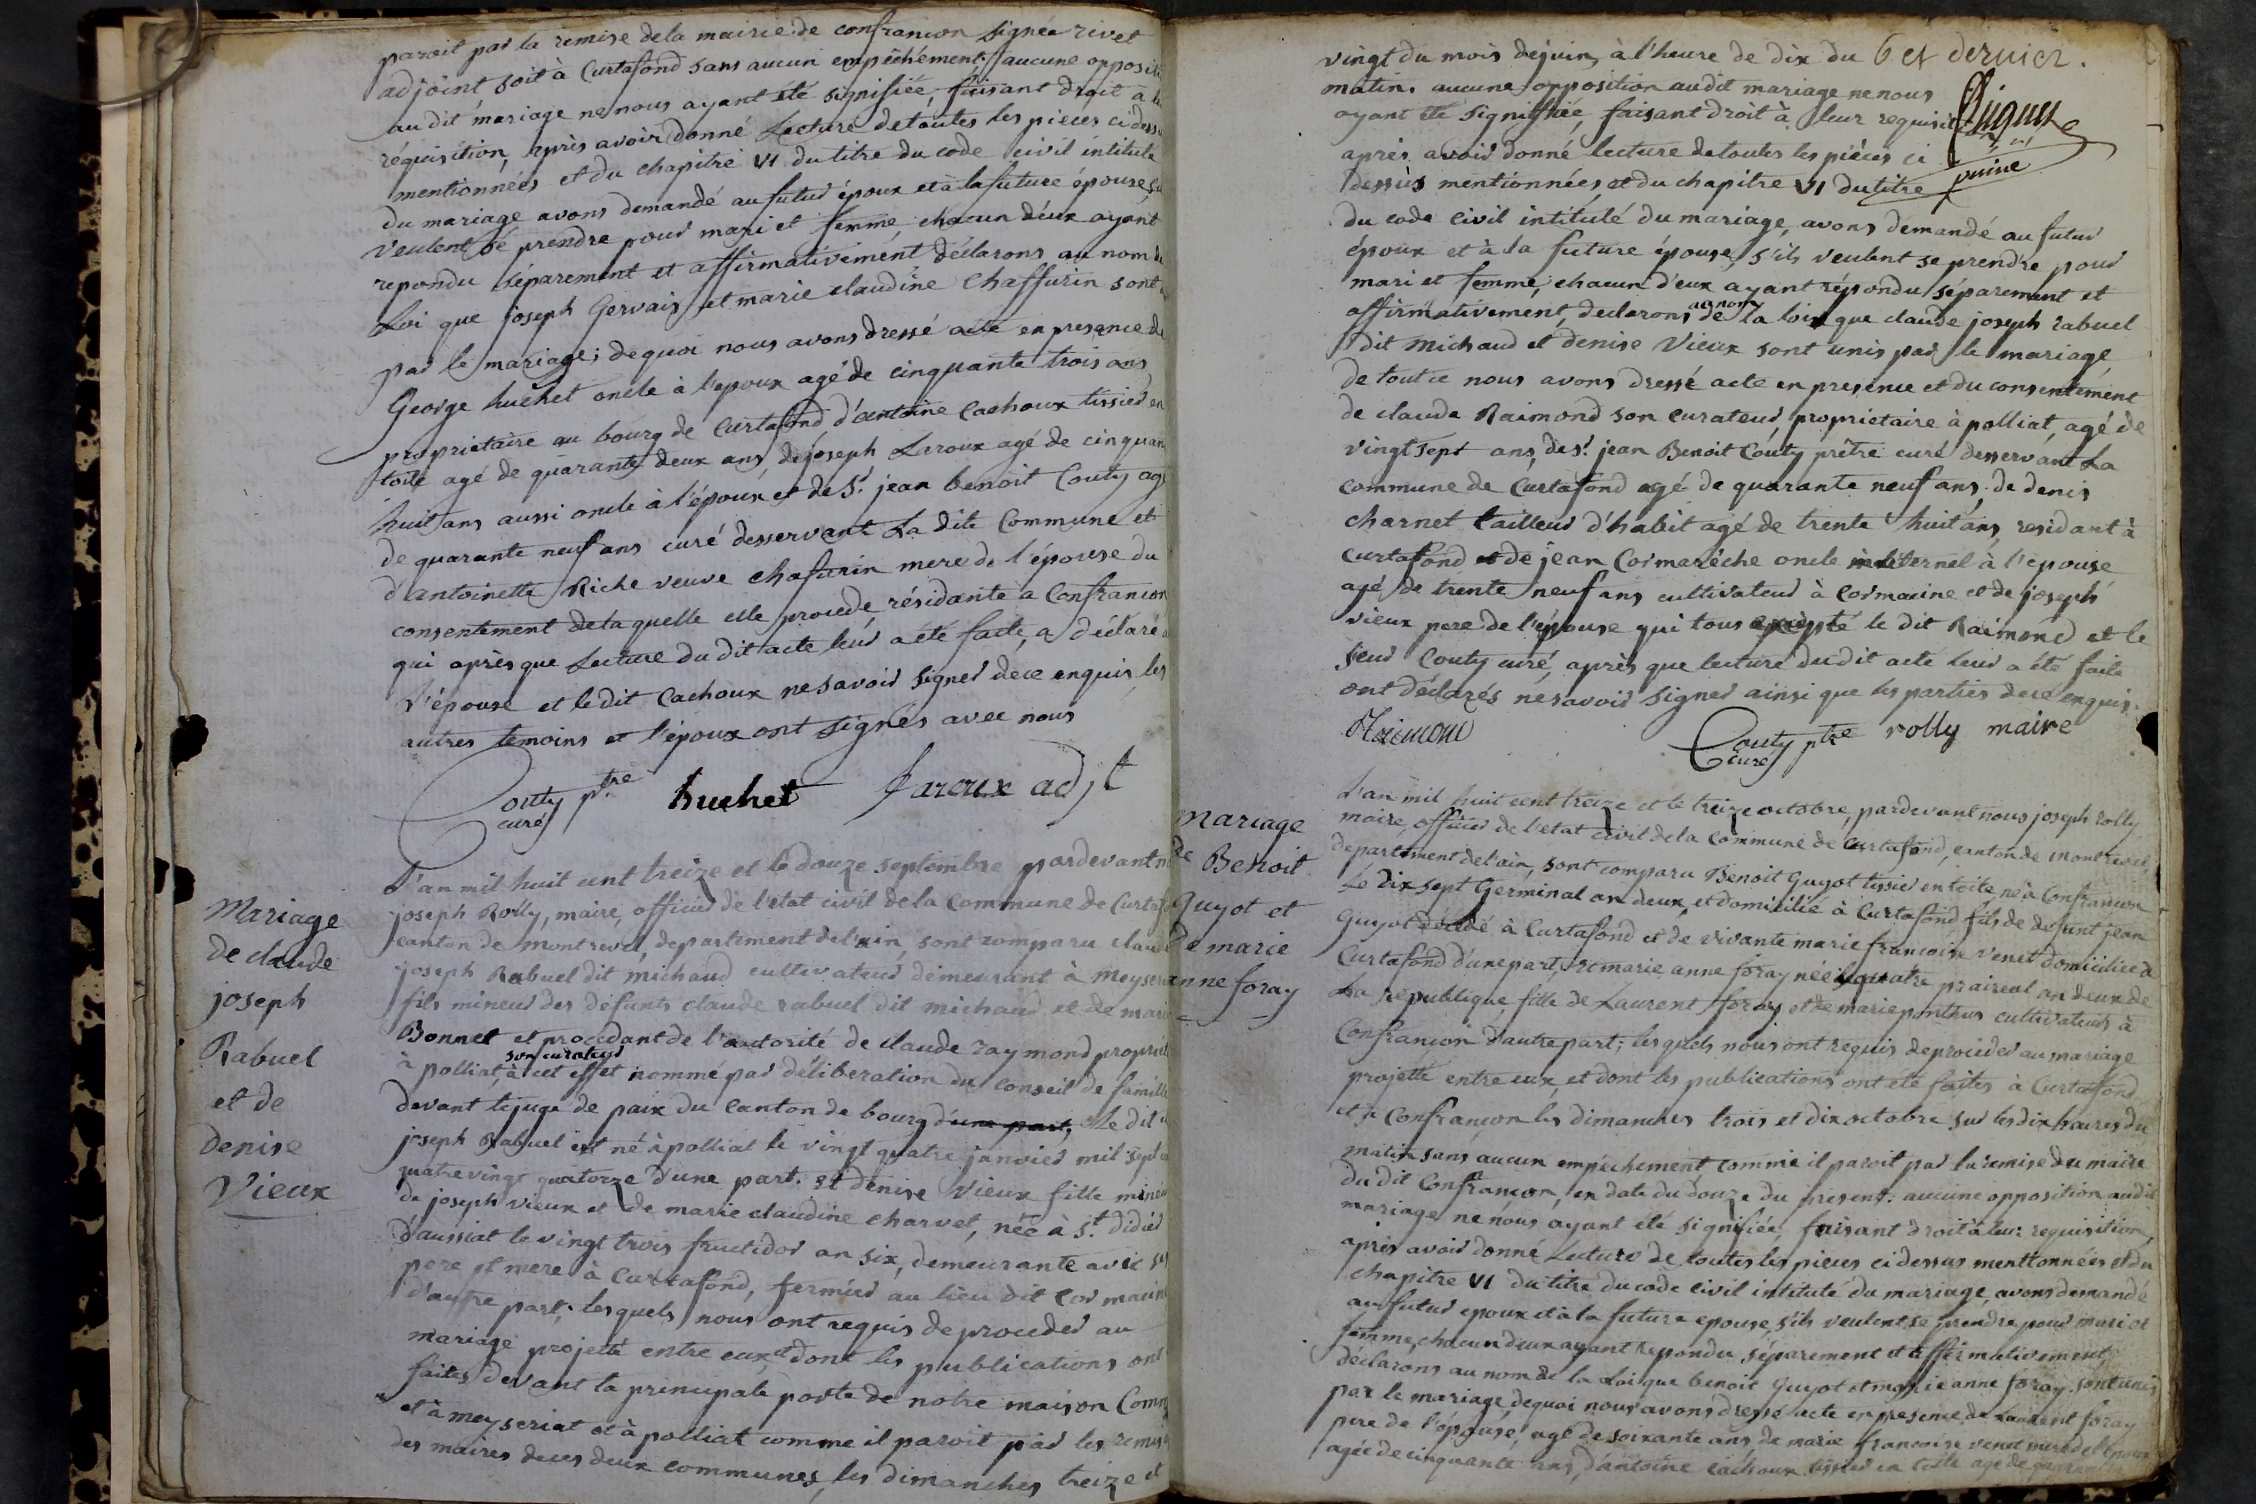 paroit par la remise dela mairie de confrancon signée rivet
adjoint soit à Curtafond sans aucun empêchément; aucune opposi
au dit mariage ne nous ayant été signifiée, faisant droit à
réquisition, après avoir donné Lecture detoutes les pieces ci dessu
mentionnées et du chapitre VI du titre du code civil intitulé
du mariage avons demandé au futur époux et à la future épouse, s'il
veulent se prendre pour mari et femme, chacun d'eux ayant
repondu séparement et affirmativement déclarons au nom de
Loi que joseph Gervais et marie claudine Chaffurin sont
par le mariage; dequoi nous avons dressé acte en presence de
George huchet oncle à l'epoux agé de cinquante trois ans
propriétaire au bourg de Curtafond d'antoine Cachoux tissier en
toile agé de quarante deux ans, de joseph Laroux agé de cinquan
huit ans aussi oncle à l'époux et de Sr. jean benoit Couty agé
de quarante neuf ans curé desservant La dite Commune et
d'antoinette Riche veuve chafurin mere de l'épouse du
consentement de laquelle elle procede, résidante a Confrancon
qui après que Lecture du dit acte leur a été faite, a déclaré
l'épouse et le dit Cachoux ne savoir signer de ce enquis, les
autres temoins et l'époux ont signés avec nous
Couty ptre
curé
huchet
Laroux adjt
Mariage
de claude
joseph
Rabuel
et de
denise
Vieux
L'an mil huit cent treize et le douze septembre pardevant n
joseph Rolly, maire, officier de l'etat civil de la Commune de Curtaf
canton de montrevel, departement de l'ain, sont comparu claude
joseph Rabuel dit michaud cultivateur demeurant à Meyseria
fils mineur des défunts claude rabuel dit michaud et de marie
Bonnet et procedant de l'autorité de claude raymond propriét
son curateur
à polliat, à cet effet nommé par délibération du conseil de famille
devant le juge de paix du Canton de bourg d'une part, Le dit c
joseph Rabuel est né à polliat le vingt quatre janvier mil sept
quatre vingt quatorze d'une part. et denise Vieux fille mineu
de joseph vieux et de marie claudine charvet, née à St. didier
d'aussiat le vingt trois fructidor an six, demeurante avec ses
pere et mere à Curtafond, fermier au lieu dit Cormarin
d'autre part; lesquels nous ont requis de proceder au
mariage projetté entre eux et dont les publications ont
faites devant la principale porte de notre maison Comm
et à meyseriat et à polliat comme il paroit par les remis
des maires deces deux communes, les dimanches treize et
vingt du mois dejuin, à l'heure de dix du 6 et dernier.
matin. aucune opposition audit mariage ne nous
ayant été signiffiée, faisant droit à leur requisition
après avoir donné lecture de toutes les pièces ci
dessus mentionnées et du chapitre VI du titre
du code civil intitulé du mariage, avons demandé au futur
époux et à la future épouse, s'ils veulent se prendre pour
mari et femme, chacun d'eux ayant répondu séparement et
au nom
affirmativement, declarons de la loi que claude joseph rabuel
dit michaud et denise Vieux sont unis par le mariage
de tout ce nous avons dressé acte en presence et du consentement
de claude Raimond son curateur, propriétaire à polliat, agé de
vingt sept ans, de Sr. jean Benoit Couty prêtre curé desservant La
commune de Curtafond agé de quarante neuf ans, de denis
charnet tailleur d'habit agé de trente huit ans, residant à
curtafond et de jean Cormarèche oncle maternel à l'épouse
agé de trente neuf ans cultivateur à Cormarine et de joseph
vieux pere de l'épouse qui tous excepté le dit Raimond et le
sieur Couty curé, après que lecture dudit acte leur a été faite
ont déclarés ne savoir signer ainsi que les parties dece enquis.
Raimond
Couty ptre
curé
rolly maire
Mariage
de Benoit
Guyot et
de marie
anne foray
L'an mil huit cent treize et le treize octobre, pardevant nous joseph rolly
maire, officier de l'etat civil dela Commune de Curtafond, canton de montrevel,
departement de l'ain, sont comparu Benoit Guyot tissier en toile, né à Confrancon
Le dix sept Germinal an deux, et domicilié à Curtafond, fils de defunt jean
Guyot décédé à Curtafond et de vivante marie francoise venet domiciliée à
Curtafond d'une part, et marie anne foray née le quatre praireal an deux de
La republique, fille de Laurent foray et de marie ponthus cultivateurs à
Confrancon d'autre part; les quels nous ont requis de proceder au mariage
projetté entre eux, et dont les publications ont été faites à Curtafond
et à Confrançon les dimanches trois et dix octobre sur les dix heures du
matin sans aucun empechement comme il paroit par la remise du maire
du dit Confrancon, en date du douze du present: aucune opposition audit
mariage ne nous ayant été signifiée, faisant droit à leur requisition,
après avoir donné Lecture de toutes les pieces ci dessus menttonnées et du
chapitre VI du titre du code civil intitulé du mariage, avons demandé
au futur epoux et à la future epouse, s'ils veulent se prendre pour mari et
femme, chacun d'eux ayant repondu séparement et affirmativement,
déclarons au nom de la Loi que benoit Guyot et marie anne foray sont unis
par le mariage dequoi nous avons dressé acte en presence de Laurent foray
pere de l'épouse, agé de soixante ans, de marie francoise venet mere de l'époux
agée de cinquante ans, d'antoine cachoux tissier en toile agé de quarante